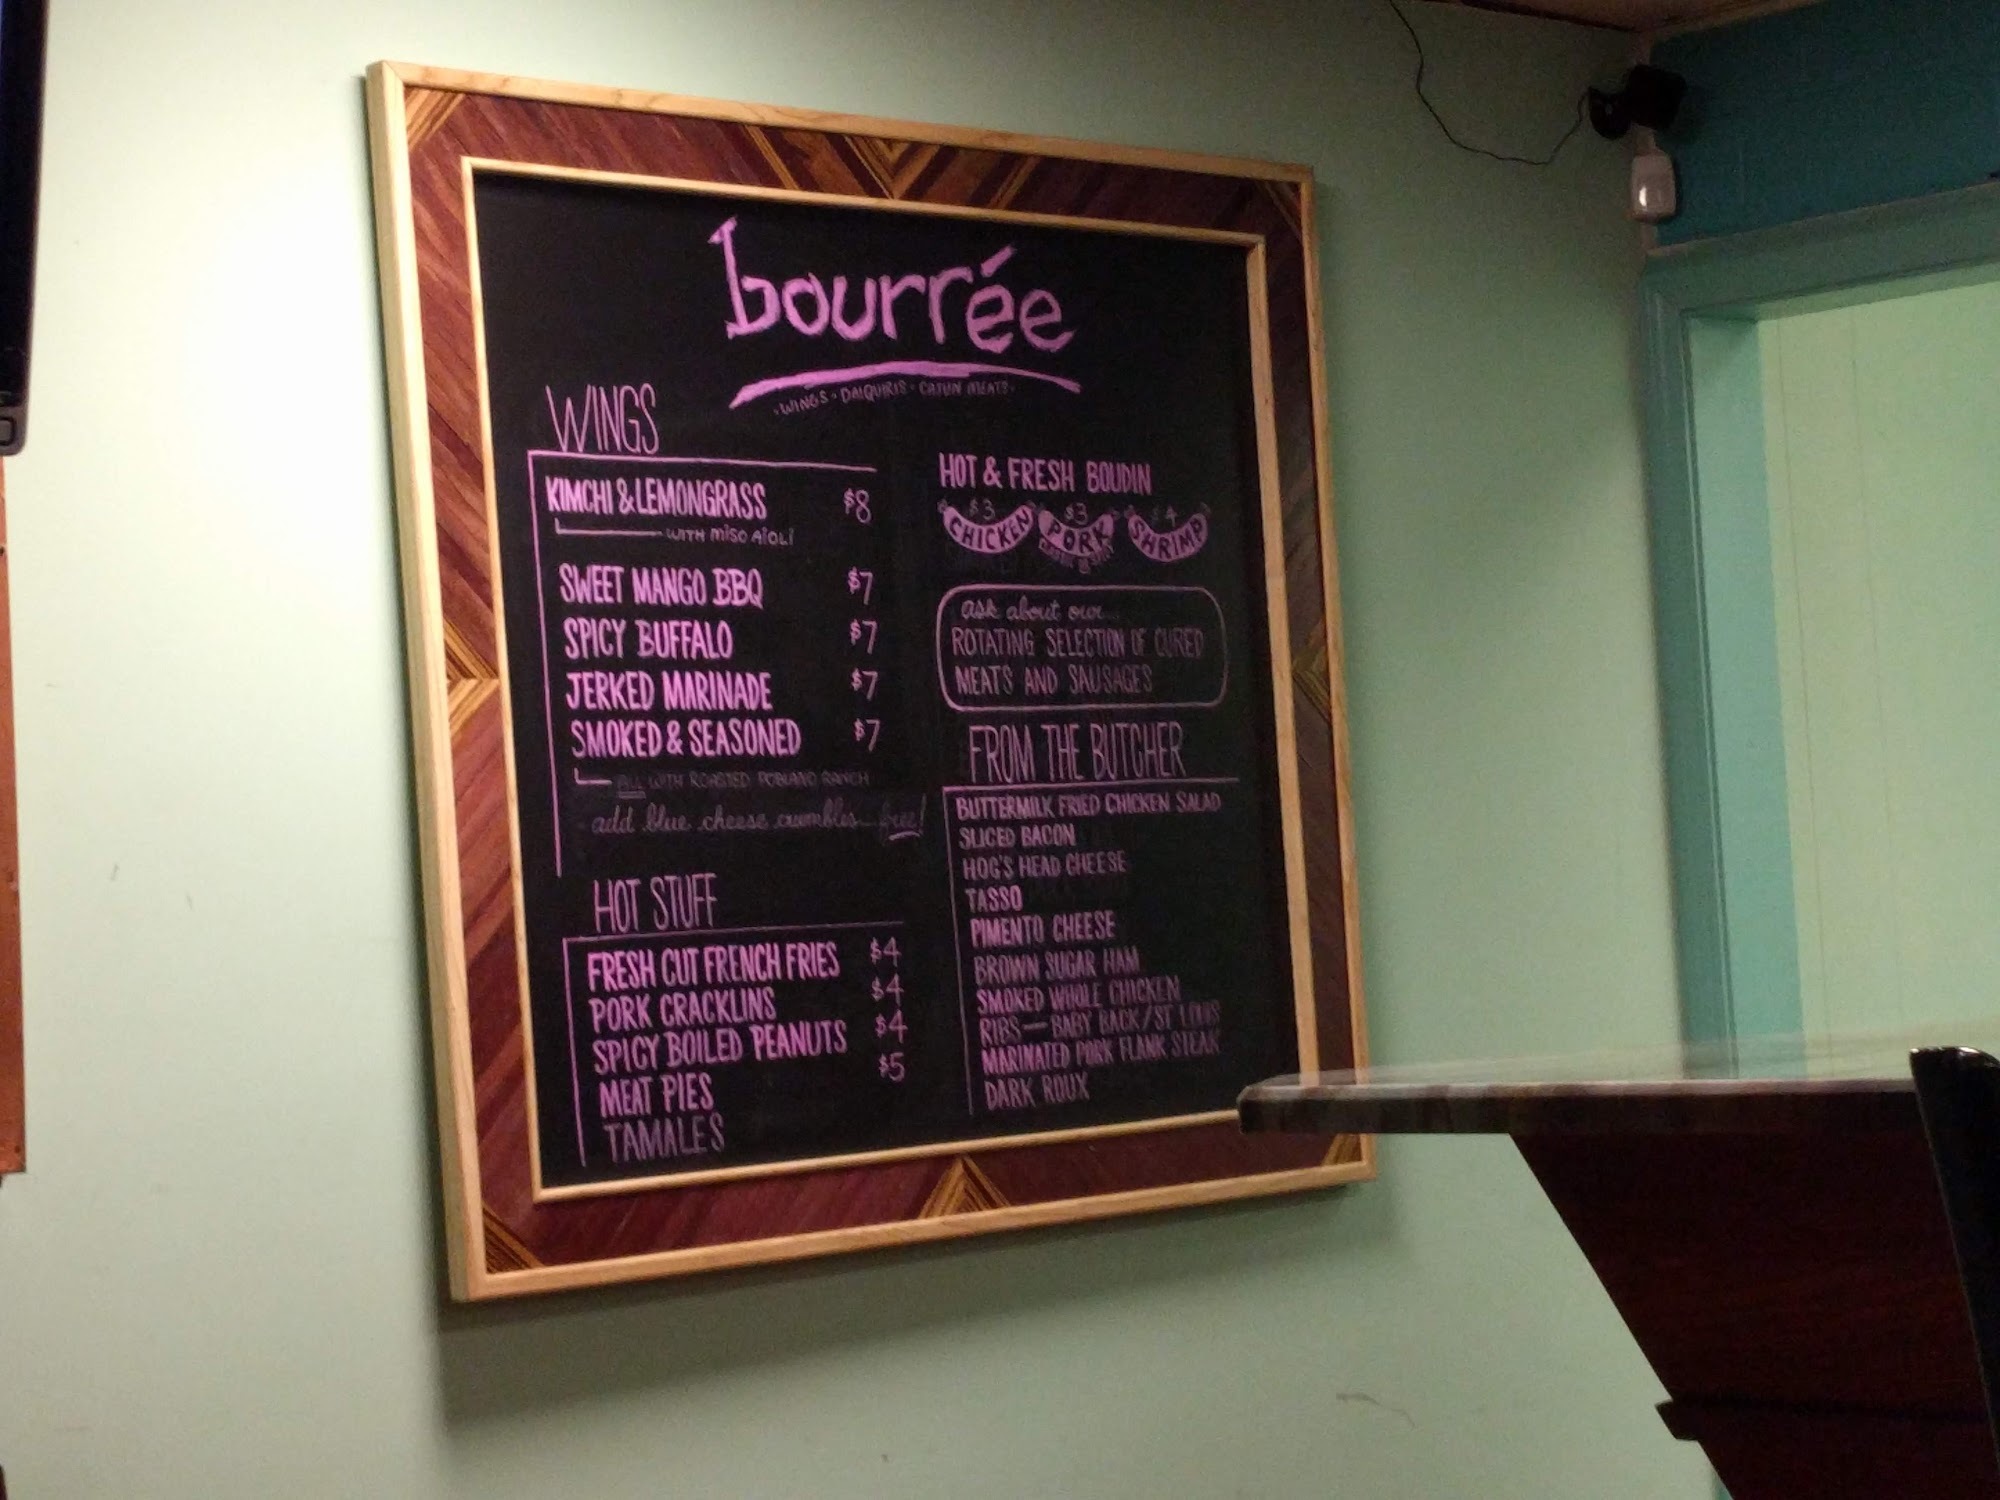 bourrée
· WINGS · DAIQUIRIS · CAJUN MEATS ·
WINGS
KIMCHI & LEMONGRASS $8
WITH MISO AIOLI
SWEET MANGO BBQ $7
SPICY BUFFALO $7
JERKED MARINADE $7
SMOKED & SEASONED $7
ALL WITH ROASTED POBLANO RANCH
add blue cheese crumbles free!
HOT STUFF
FRESH CUT FRENCH FRIES $4
PORK CRACKLINS $4
SPICY BOILED PEANUTS $4
MEAT PIES $5
TAMALES
HOT & FRESH BOUDIN
$3 $3 $4
CHICKEN PORK SHRIMP
ask about our...
ROTATING SELECTION OF CURED
MEATS AND SAUSAGES
FROM THE BUTCHER
BUTTERMILK FRIED CHICKEN SALAD
SLICED BACON
HOG'S HEAD CHEESE
TASSO
PIMENTO CHEESE
BROWN SUGAR HAM
SMOKED WHOLE CHICKEN
RIBS — BABY BACK/ST LOUIS
MARINATED PORK FLANK STEAK
DARK ROUX